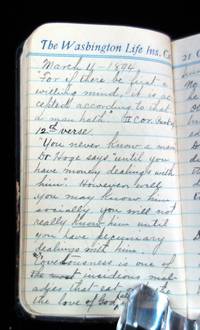 The Washington Life Ins. Co.
March 4 - 1894.
"For if there be first a
willing mind, it is ac
cepted according to that
a man hath" II Cor.
12th verse
"You never know a man"
Dr. Hoge says "until you
have money dealings with
him. However well
you may know him
socially you will not
really know him until
you have pecuniary
dealings with him."
Covetousness is one of
the most insidious mal-
adies that eat out
the love of God
21